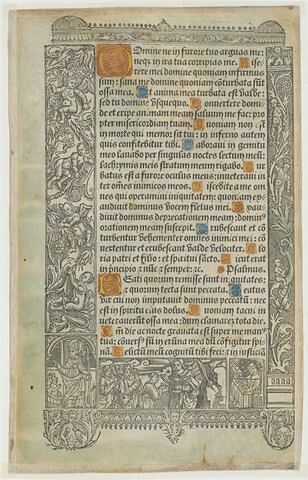 Domine ne in furore tuo arguas me:
neq; in ira tua corripias me. Mise-
rere mei domine quoniam infirmus
sum: sana me domine quoniam cōturbata sūt
ossa mea. Et anima mea turbata est valde:
sed tu domine vsquequo. Conuertere domi-
ne et eripe animam meam: saluum me fac pro
pter misericordiam tuam. Quoniam non est
in morte qui memor sit tui: in inferno autem
quis confitebitur tibi. Laboraui in gemitu
meo lauabo per singulas noctes lectum meū:
lachrymis meis stratum meum rigabo. Tur
batus est a furore oculus meus: inueteraui in
ter oēs inimicos meos. Discedite a me om
nes qui operamini iniquitatem: quoniam ex
audiuit dominus vocem fletus mei. Exau-
diuit dominus deprecationem meam: domin9
orationem meam suscepit. Erubescant et cō
turbentur vehementer omnes inimici mei: cō
uertantur et erubescant valde velociter. Glo
ria patri et filio: et spiritui sācto. Sicut erat
in principio et nūc et semper: et. Psalmus.
Beati quorum remisse sunt iniquitates:
et quorum tecta sunt peccata. Beatus
vir cui non imputauit dominus peccatū: nec
est in spiritu eius dolus. Quoniam tacui in
ueterauerūt ossa mea: dum clamarem tota die.
Qm̄ die ac nocte grauata est super me manus
tua: cōuersus sū in erūna mea dū cōfigitur spi
na. Delictū meū cognitū tibi feci: et iniusticiā